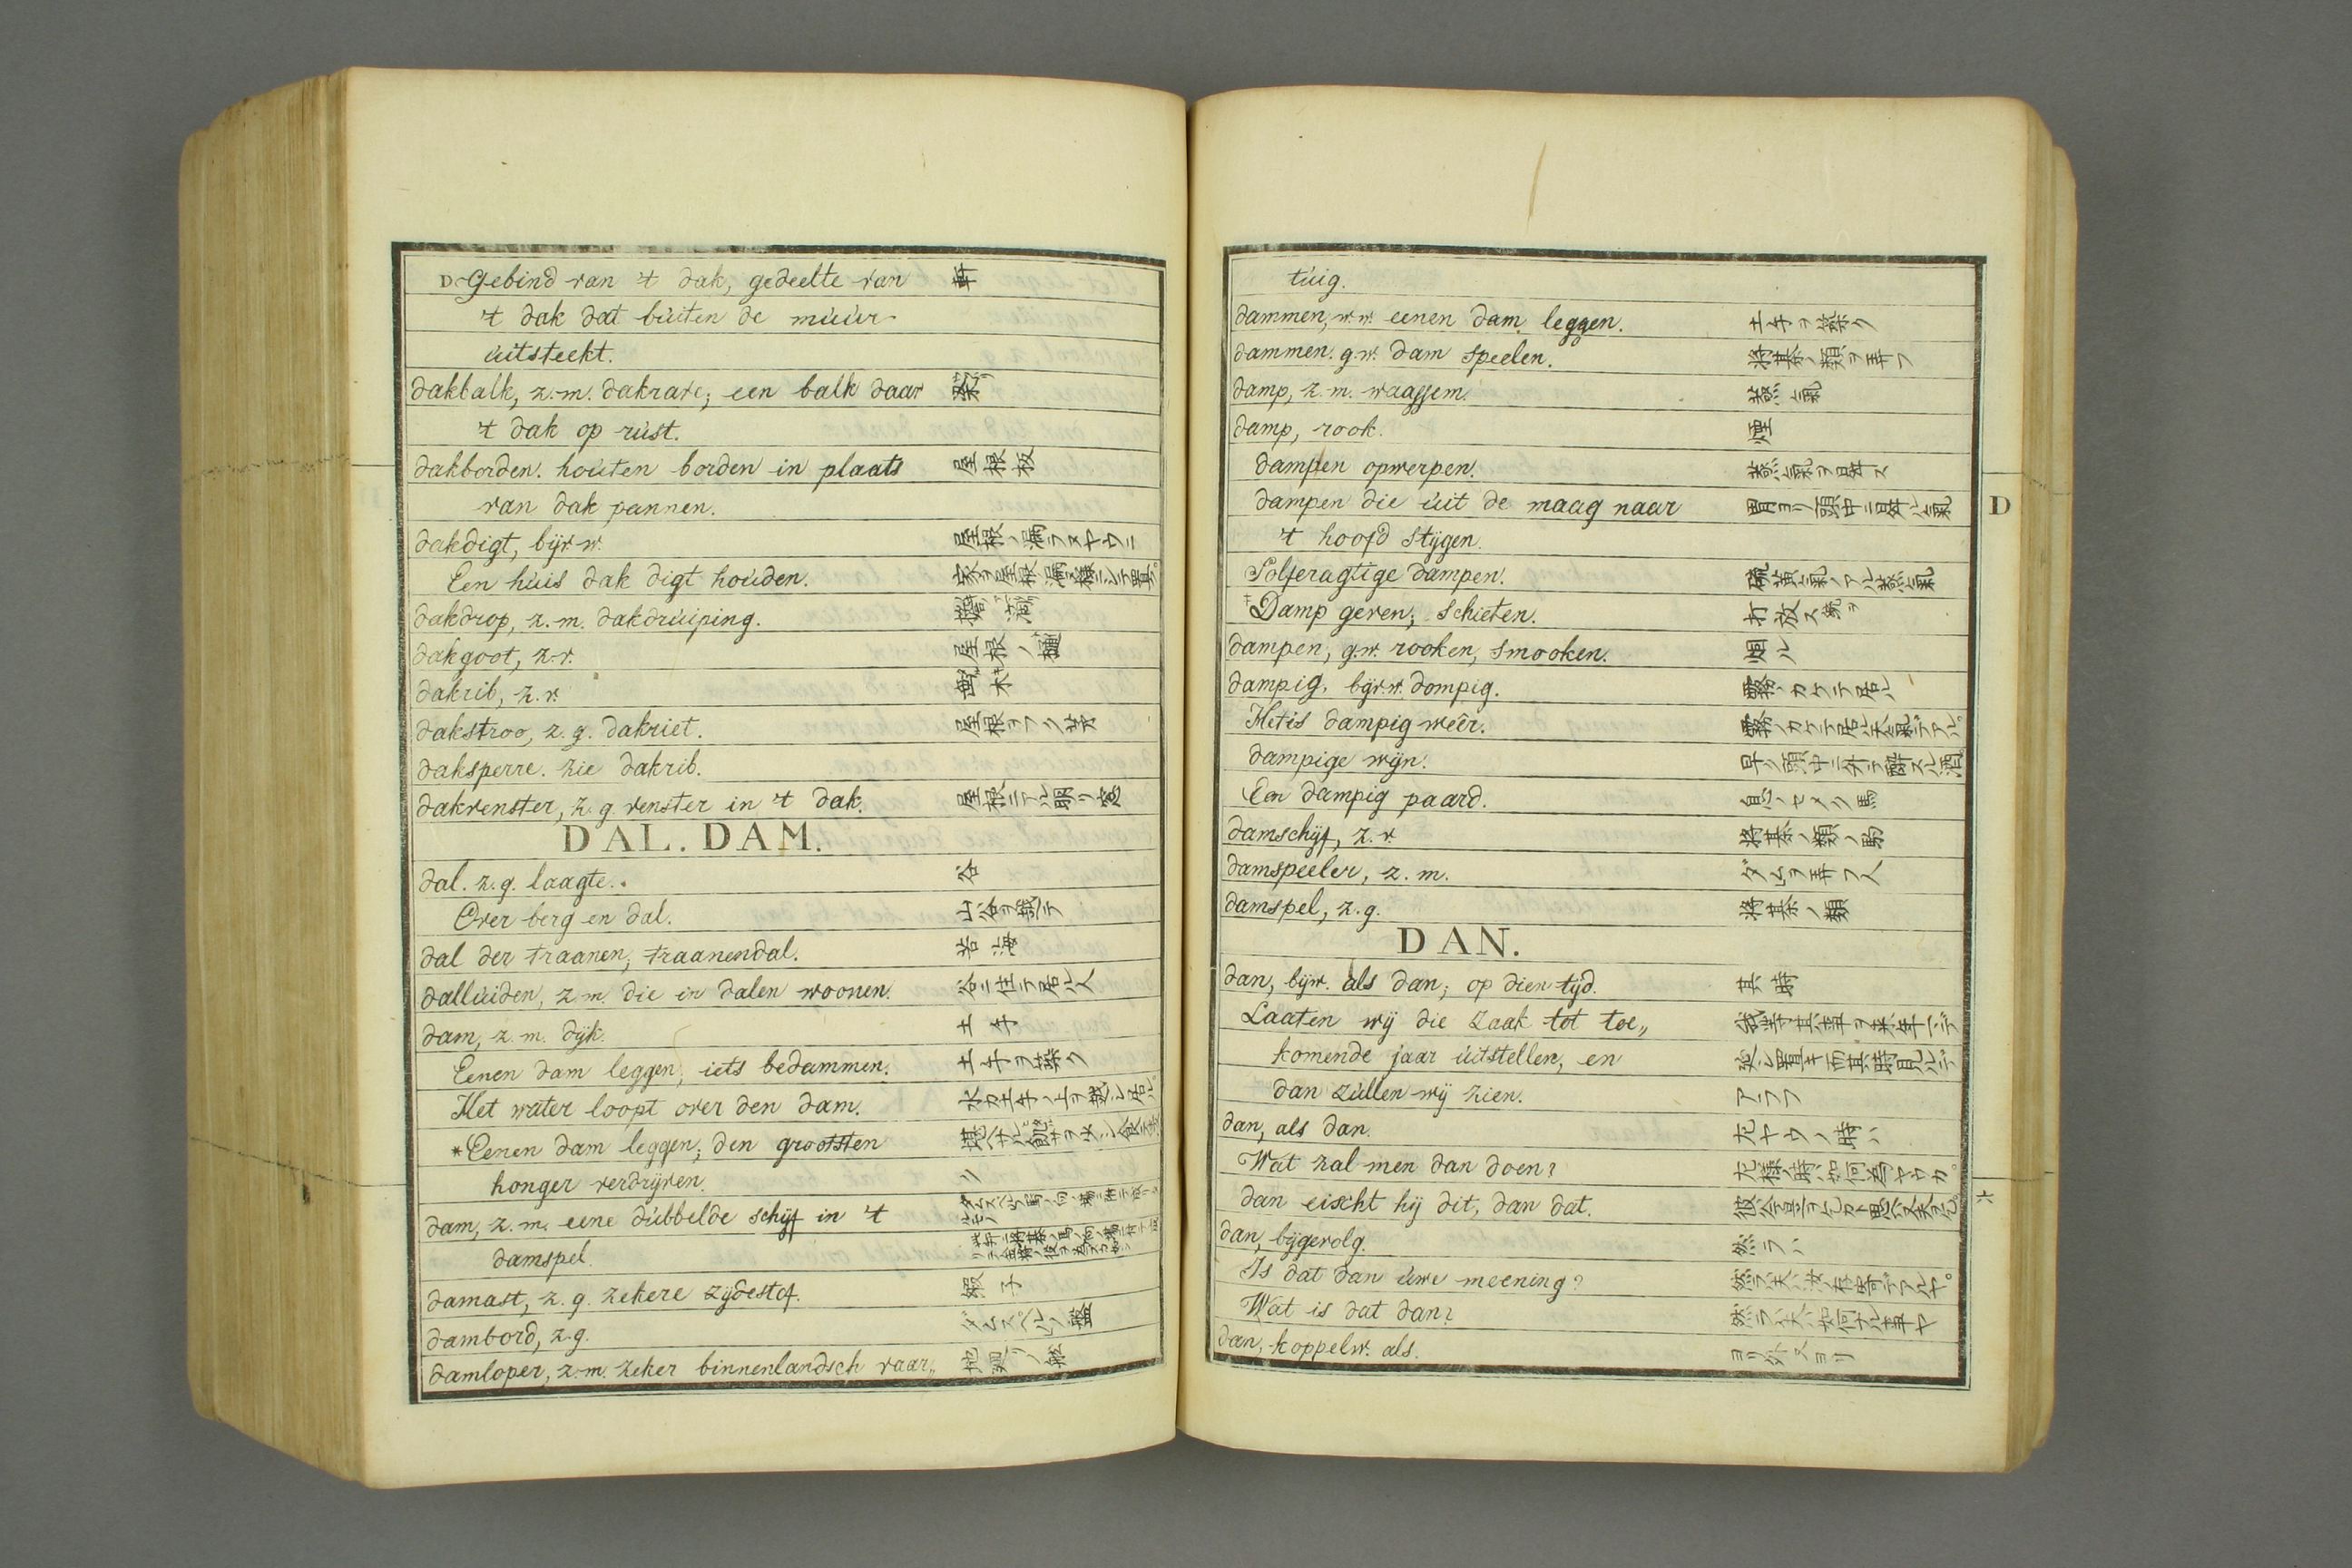 D Gebind van 't dak, gedeelte van 軒
't dak dat búiten de múúr
úitsteekt.
dakbalk, z. m. dakrave; een balk daar 梁
't dak op rúst.
dakborden. hoúten borden in plaats 屋根板
van dak pannen.
dakdigt, bijv. w. 屋根ノ漏ラヌヤウニ
Een húis dak digt hoúden.
dakdrop, z. m. dakdrúiping. 簷滴
dakgoot, z. v. 屋根ノ樋
dakrib, z. v. 木
dakstroo, z. g. dakriet. 屋根ヲフク茅
daksperre. zie dakrib.
dakvenster, z. g. venster in 't dak. 屋根ニアル明リ窓
DAL. DAM.
dal. z. g. laagte. 谷
Over berg en dal. 山谷ヲ越テ
dal der traanen, traanendal. 苦海
dallúiden, z. m. die in dalen woonen. 谷ニ住テ居ル人
dam, z. m. dijk. 土手
Eenen dam leggen, iets bedammen. 土手ヲ築ク
Het water loopt over den dam. 水カ土手ノ上ヲ越シ居ル。
* Eenen dam leggen; den grootsten
honger verdrijven.
dam, z. m. eene dúbbelde schijf in 't
damspel.
damast, z. g. zekere zijdestof. 緞子
dambord, z. g. ダムスペルノ盤
damloper, z. m. zeker binnenlandsch vaar„ 地廻リノ船
túig.
dammen, w. w. eenen dam leggen. 土手ヲ築ク
dammen. g. w. dam speelen. 将棊ノ類ヲ弄フ
damp, z. m. waassem. 蒸氣
damp, rook. 煙
dampen opwerpen. 蒸氣ヲ昇ス
dampen die úit de maag naar 胃ヨリ頭中ニ昇ル氣
't hoofd stijgen.
D
Solferagtige dampen. 硫黄氣ノアル蒸氣
‡ Damp geven; schieten. 打放ス
dampen, g. w. rooken, smooken. 烟ル
dampig, bijv. w. dompig. 霧ノカケテ居ル
Het is dampig weêr. 霧ノカケテ居ル天氣デアル。
dampige wijn.
Een dampig paard. 息ノセメク馬
damschijf, z. v. 将棊ノ類ノ駒
damspeeler, z. m. ダムヲ弄フ人
damspel, z. g. 将棊ノ類
DAN.
dan, bijw. als dan; op dien tijd. 其時
Laaten wij die zaak tot toe„
komende jaar úitstellen, en
dan zúllen wij zien. アラフ
dan, als dan.
Wat zal men dan doen?
dan eischt hij dit, dan dat.
dan, bijgevolg. 然ラハ
Is dat dan úwe meening?
Wat is dat dan?
dan, koppelw. als.